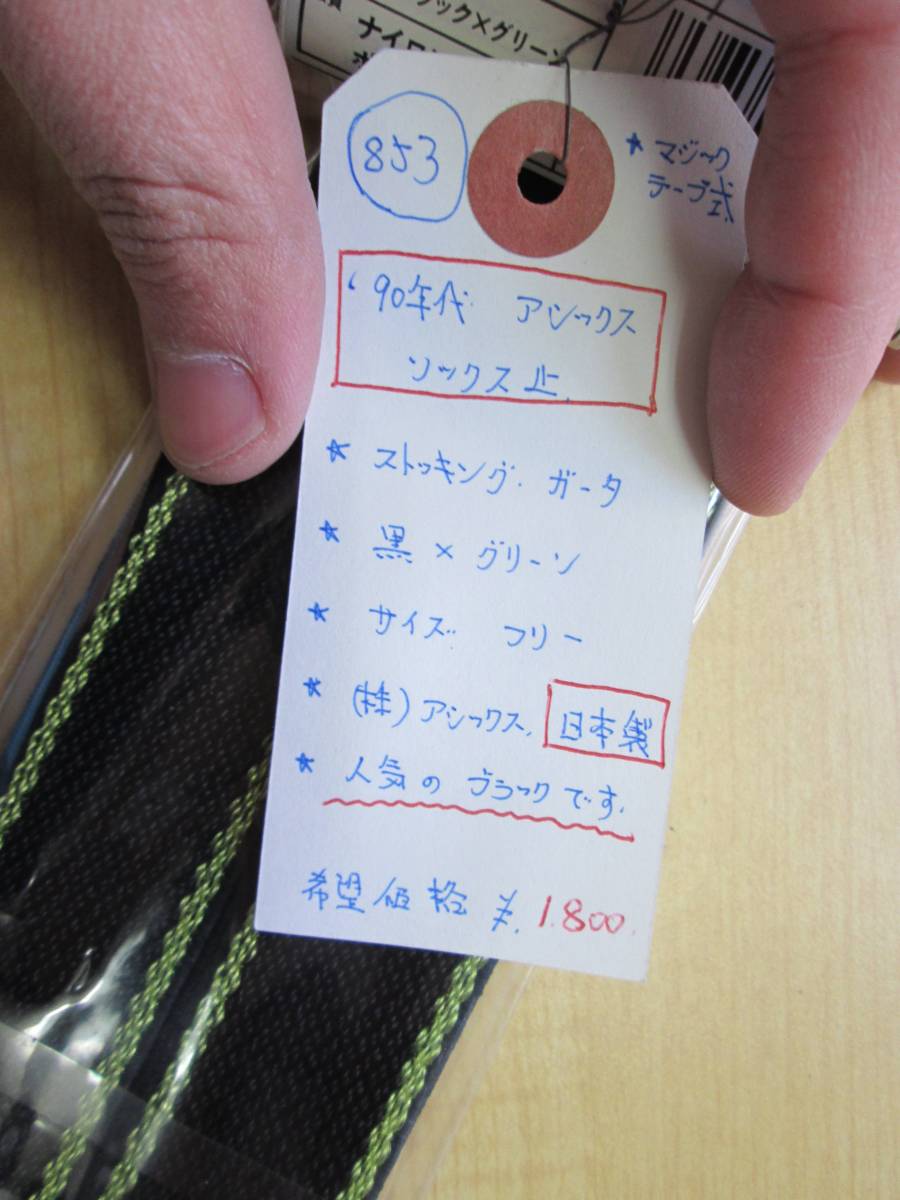 ラック×グリーン
ナイロン
853
★ マジック
テープ式
'90年代 アシックス
ソックス止
★ ストッキング. ガータ
★ 黒 × グリーン
★ サイズ. フリー
★ (株)アシックス. 日本製
★ 人気の ブラックです.
希望価格 ¥. 1.800.